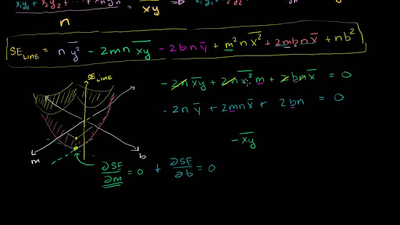 x₁y₁ + x₂y₂ + ... + xₙyₙ
n
xy
SE_LINE = n y̅² - 2mn x̅y̅ - 2bn y̅ + m² n x̅² + 2mbn x̅ + nb²
SE_LINE
-2n x̅y̅ + 2n x̅² m + 2bn x̅ = 0
-2n y̅ + 2mn x̅ + 2bn = 0
- x̅y̅
m
b
∂SE/∂m = 0 + ∂SE/∂b = 0